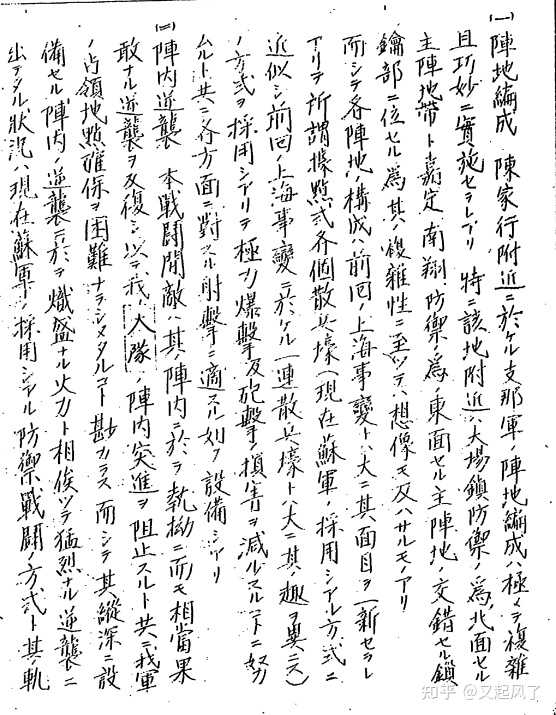 (一) 陣地編成　陳家行附近ニ於ケル支那軍ノ陣地編成ハ極メテ複雑
且巧妙ニ実施セラレアリ　特ニ該地附近ハ大場鎮防禦ノ為北面セル
主陣地帯ト嘉定南翔防禦ノ為東面セル主陣地ノ交錯セル鎖
鑰部ニ位セル為其ノ複雑性ニ至ツテハ想像モ及ハサルモノアリ
而シテ各陣地ノ構成ハ前回ノ上海事変トハ大ニ其面目ヲ一新セラレ
アリテ所謂拠点式各個散兵壕（現在蘇軍ノ採用シアル方式ニ
近似シ前回ノ上海事変ニ於ケル一連散兵壕トハ大ニ其ノ趣ヲ異ニス）
ノ方式ヲ採用シアリテ極力爆撃及砲撃ノ損害ヲ減少スルコトニ努
ムルト共ニ各方面ニ対スル射撃ニ適スル如ク設備シアリ
(二) 陣内逆襲　本戦闘間敵ハ其ノ陣内ニ於テ執拗ニ而モ相当果
敢ナル逆襲ヲ反復シ以テ我大隊ノ陣内突進ヲ阻止スルト共ニ我軍
ノ占領地点確保ヲ困難ナラシメタルコト尠カラス而シテ其縦深ニ設
備セル陣内ノ逆襲ニ於テ熾盛ナル火力ト相俟ツテ猛烈ナル逆襲ニ
出テタル状況ハ現在蘇軍ノ採用シアル防禦戦闘ノ方式ト其ノ軌
知乎 @又起风了